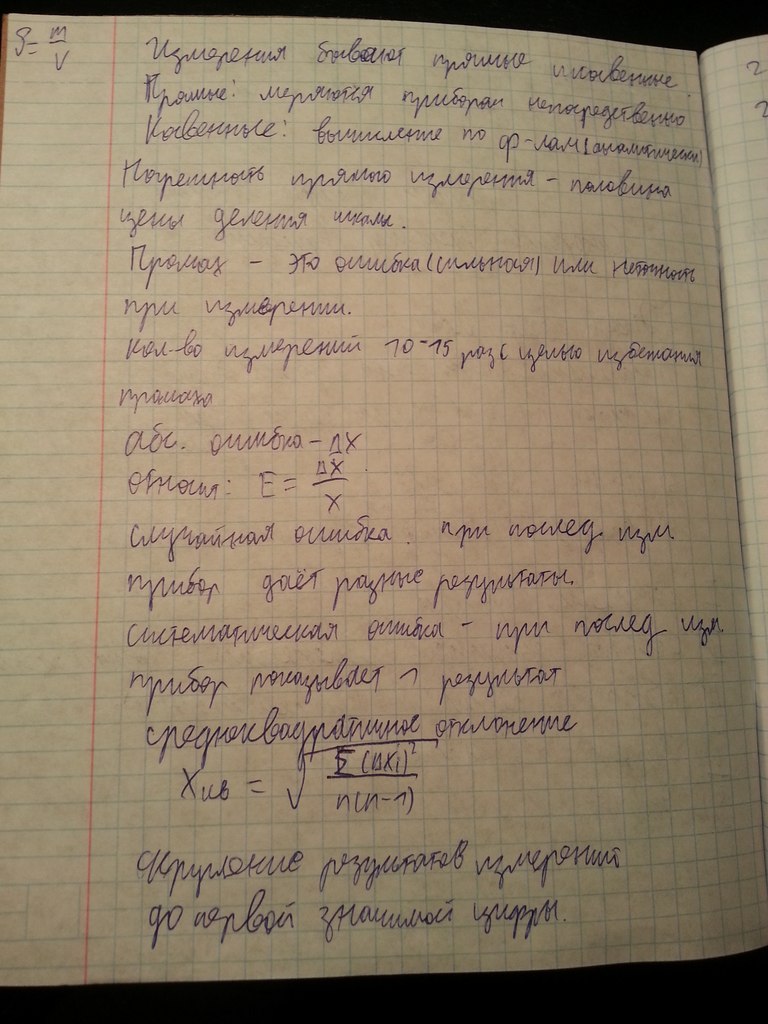 ρ = m/V
Измерения бывают прямые и косвенные
Прямые: меряются прибором непосредственно
Косвенные: вычисление по ф-лам (аналитически)
Погрешность прямого измерения - половина
цены деления шкалы.
Промах - это ошибка (сильная) или неточность
при измерении.
Кол-во измерений 10-15 раз с целью избежания
промаха
абс. ошибка - ΔX
относит: E = ΔX/X
случайная ошибка: при послед. изм.
прибор даёт разные результаты.
систематическая ошибка - при послед изм.
прибор показывает 1 результат
среднеквадратичное отклонение
Xкв = √(Σ(ΔXi)²/n(n-1))
Округление результатов измерений
до первой значимой цифры.